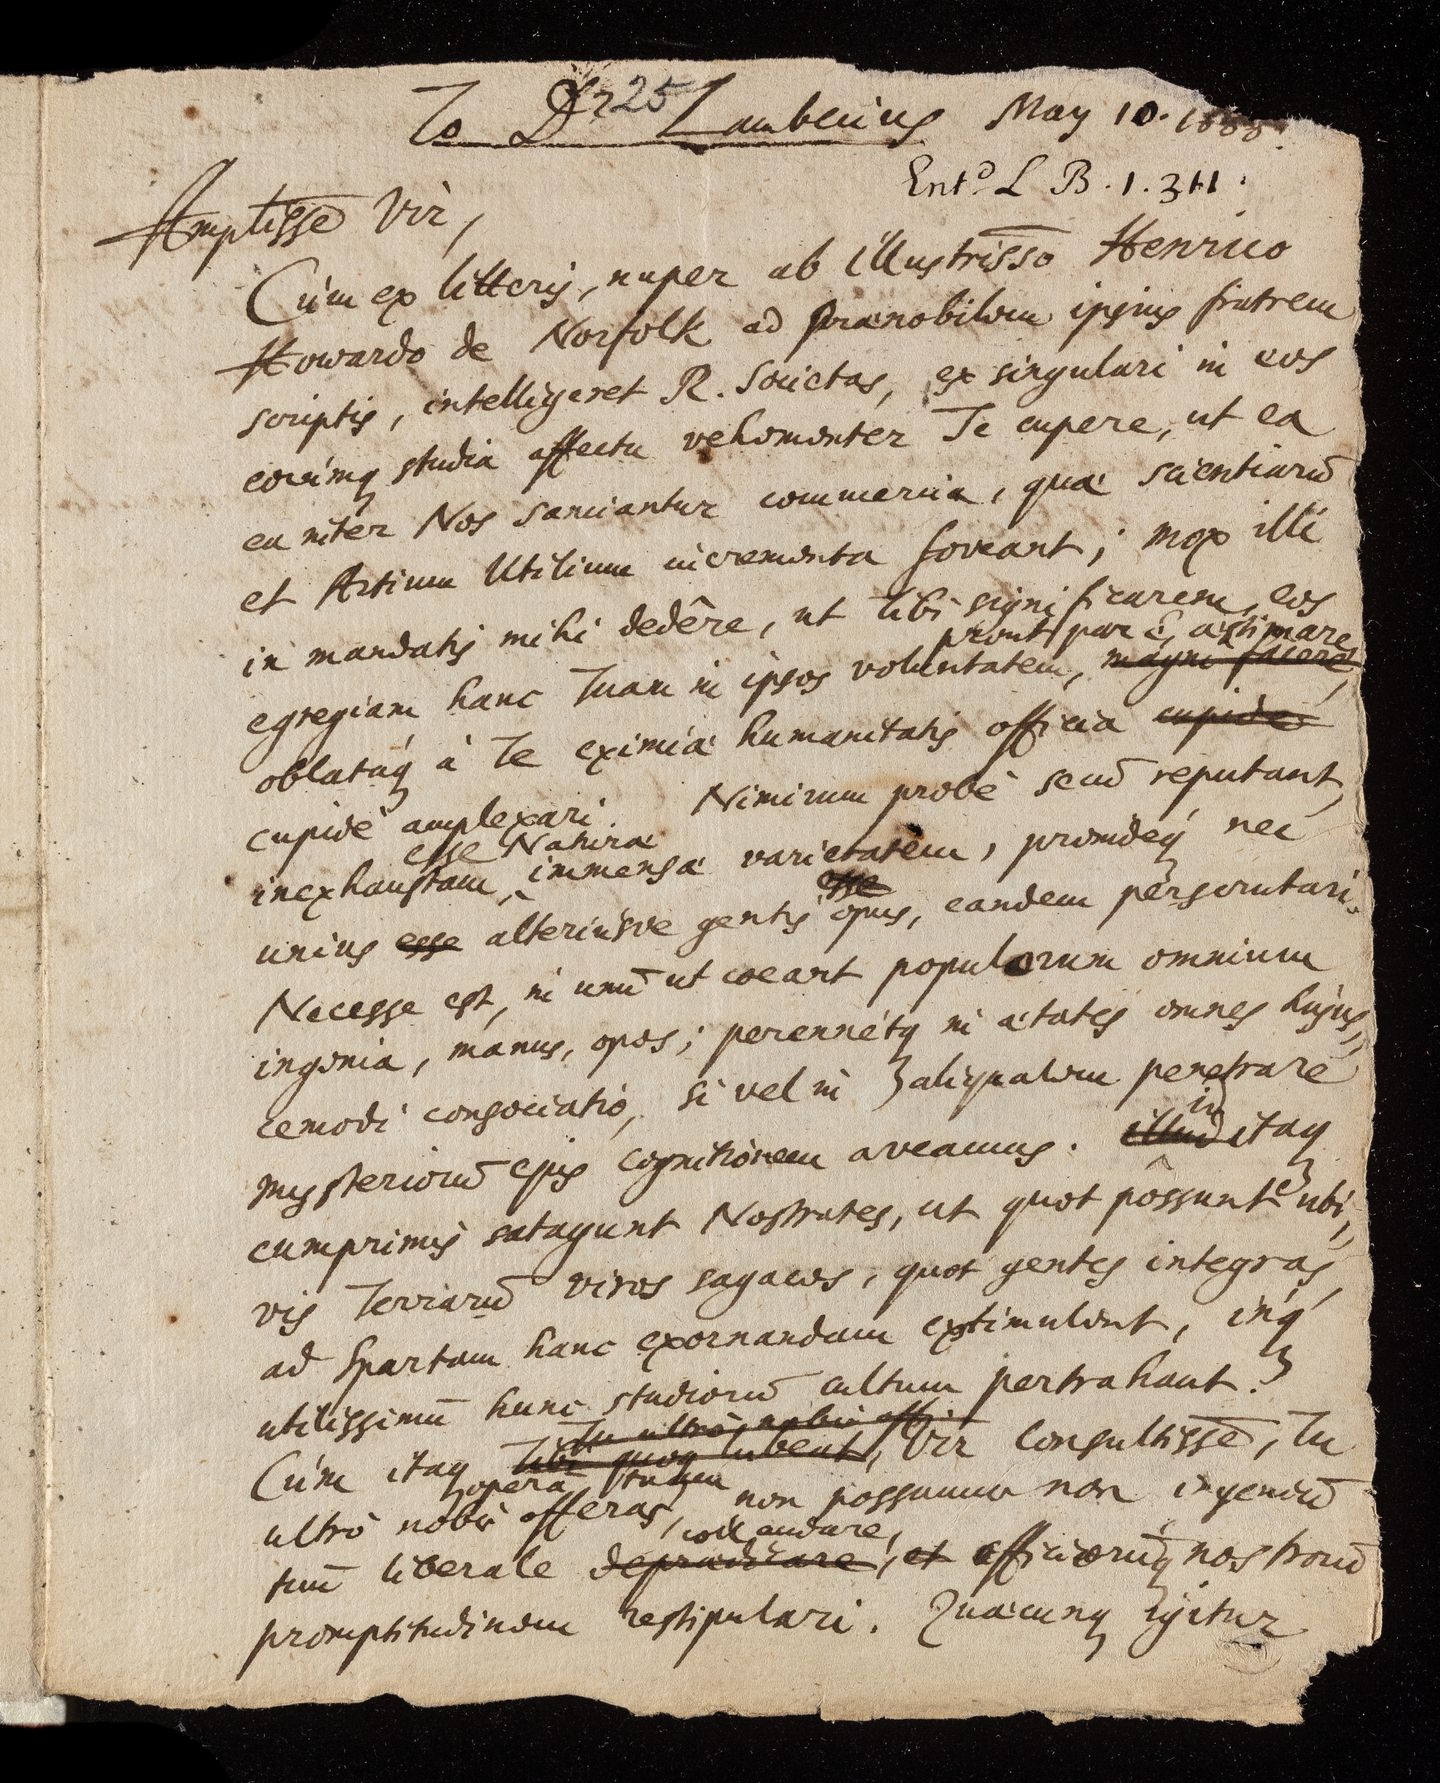 25
To Dr Lambecius May 10. 1665.
Entd L B. 1. 311.
Amplisse Vir,
Cùm ex litteris, nuper ab illustrisso Henrico
Howardo de Norfolk ad prænobilem ipsius fratrem
scriptis, intelligeret R. Societas, ex singulari in eos
eorúmq studia affectu vehementer Te cupere, ut ea
inter Nos sanciantur commercia, quæ scientiarū
et Artium Utilium incrementa foveant; mox illi
in mandatis mihi dedêre, ut tibi significarem, eos
prout par ē, æstimare
egregiam hanc Tuam in ipsos voluntatem, magni facere,
oblatáq à Te eximiæ humanitatis officia cupide
cupidè amplexari. Nimirum probè secū reputant,
esse Naturæ
inexhaustam immensæ varietatem, proindéq nec
esse
unius esse alteriúsve gentis opus, eandem perscrutari.
Necesse est, in unū ut coeant populorum omnium
ingenia, manus, opes; perennétq in ætates omnes hujus-
cemodi consociatio, si vel in aliqualem penetrare
mysteriorū ejus cognitionem aveamus. illud itaq
id
cumprimis satagunt Nostrates, ut quot possunt ubi-
vis Terrarū viros sagaces, quot gentes integras,
ad Spartam hanc exornandam extimulent, inq
utilissimū hunc studiorū cultum pertrahant.
Tu ultrò nobis
Cúm itaq Tibi quoq lubeat, Vir Consultisse, Tu
operā tuam
ultrò nobis offeras, non possumus non ingeniū
collaudare,
tuū liberale deprædicare, et officiorūq nostrorū
promptitudinem restipulari. Quæcunq igitur